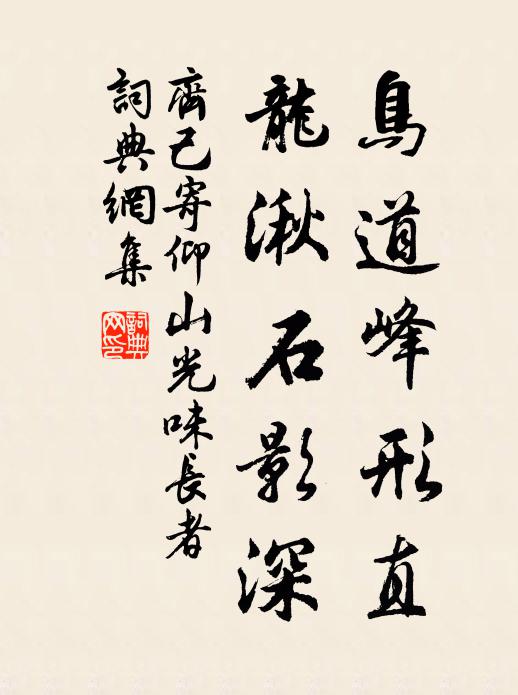 鳥道峰形直
龍湫石影深
齊己寄仰山光味長者
詞典網集
詞典網印